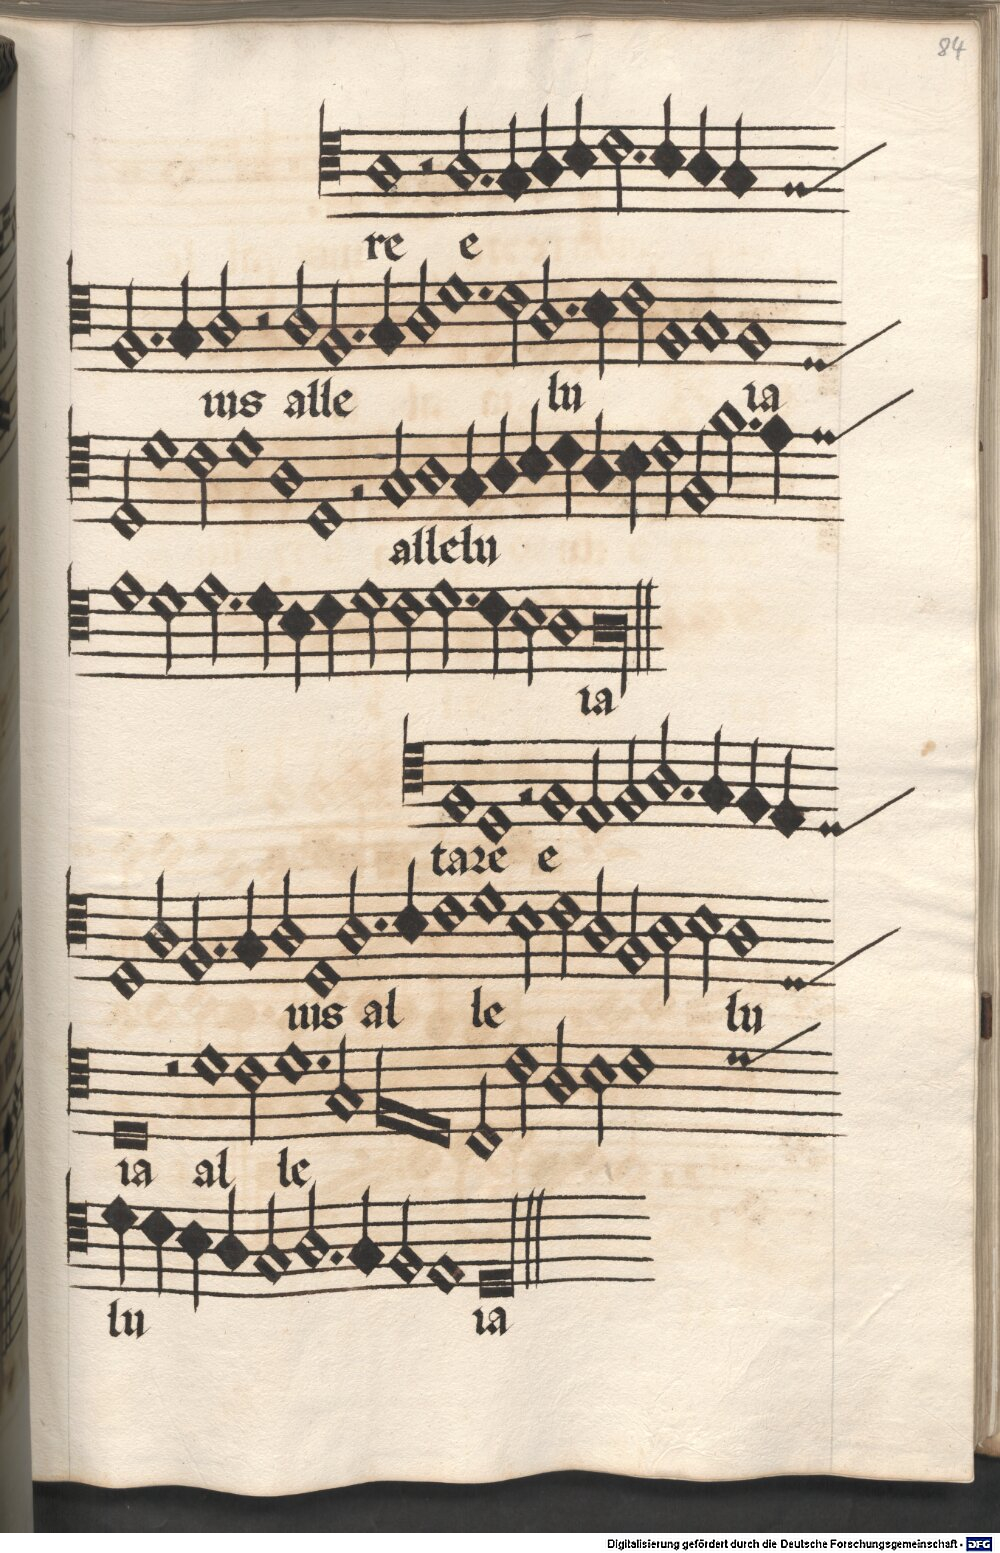 84
re e
ius alle lu ia
allelu
ia
tare e
ius al le lu
ia al le
lu ia
Digitalisierung gefördert durch die Deutsche Forschungsgemeinschaft - DFG